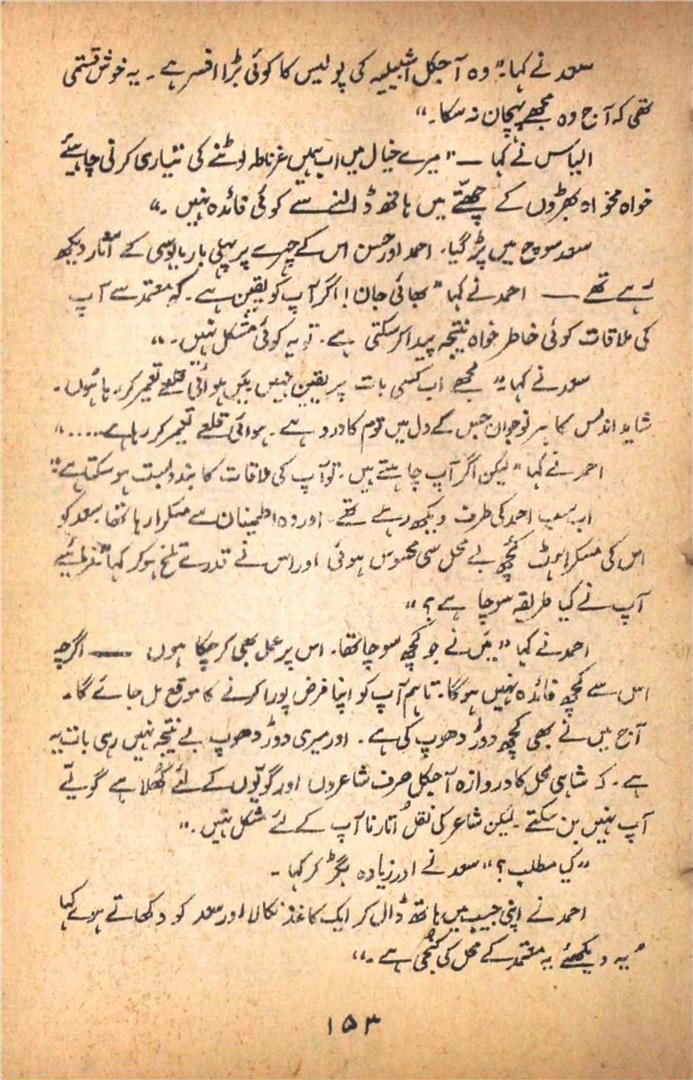 سعد نے کہا۔ ”وہ آجکل اشبیلیہ کی پولیس کا کوئی بڑا افسر ہے۔ یہ خوش قسمتی
تھی کہ آج وہ مجھے پہچان نہ سکا۔“
الیاس نے کہا — ”میرے خیال میں اب ہمیں غرناطہ لوٹنے کی تیاری کرنی چاہیئے
خواہ مخواہ بھڑوں کے چھتّے میں ہاتھ ڈالنے سے کوئی فائدہ نہیں۔“
سعد سوچ میں پڑ گیا۔ احمد اور حسن اس کے چہرے پر پہلی بار مایوسی کے آثار دیکھ
رہے تھے — احمد نے کہا ”بھائی جان! اگر آپ کو یقین ہے۔ کہ معتمد سے آپ
کی ملاقات کوئی خاطر خواہ نتیجہ پیدا کر سکتی ہے۔ تو یہ کوئی مشکل نہیں۔“
سعد نے کہا۔ ”مجھے اب کسی بات پر یقین نہیں میں ہوائی قلعے تعمیر کر رہا ہوں۔
شاید اندلس کا ہر نوجوان جس کے دل میں قوم کا درد ہے۔ ہوائی قلعے تعمیر کر رہا ہے.....“
احمد نے کہا ”لیکن اگر آپ چاہتے ہیں۔ تو آپ کی ملاقات کا بندوبست ہو سکتا ہے“
اب سب احمد کی طرف دیکھ رہے تھے۔ اور وہ اطمینان سے مسکرا رہا تھا۔ سعد کو
اس کی مسکراہٹ کچھ بے محل سی محسوس ہوئی اور اس نے قدرے تلخ ہو کر کہا ”فرمائیے
آپ نے کیا طریقہ سوچا ہے؟“
احمد نے کہا ”میں نے جو کچھ سوچا تھا۔ اس پر عمل بھی کر چکا ہوں — اگرچہ
اس سے کچھ فائدہ نہیں ہوگا۔ تاہم آپ کو اپنا فرض پورا کرنے کا موقع مل جائے گا۔
آج میں نے بھی کچھ دوڑ دھوپ کی ہے۔ اور میری دوڑ دھوپ بے نتیجہ نہیں رہی بات یہ
ہے۔ کہ شاہی محل کا دروازہ آجکل صرف شاعروں اور گویّوں کے لئے کھُلا ہے گویّے
آپ نہیں بن سکتے۔ لیکن شاعر کی نقل اُتارنا آپ کے لئے مشکل نہیں۔“
”کیا مطلب؟“ سعد نے اور زیادہ بگڑ کر کہا۔
احمد نے اپنی جیب میں ہاتھ ڈال کر ایک کاغذ نکالا اور سعد کو دکھاتے ہوئے کہا
”یہ دیکھئے یہ معتمد کے محل کی کُنجی ہے۔“
۱۵۳